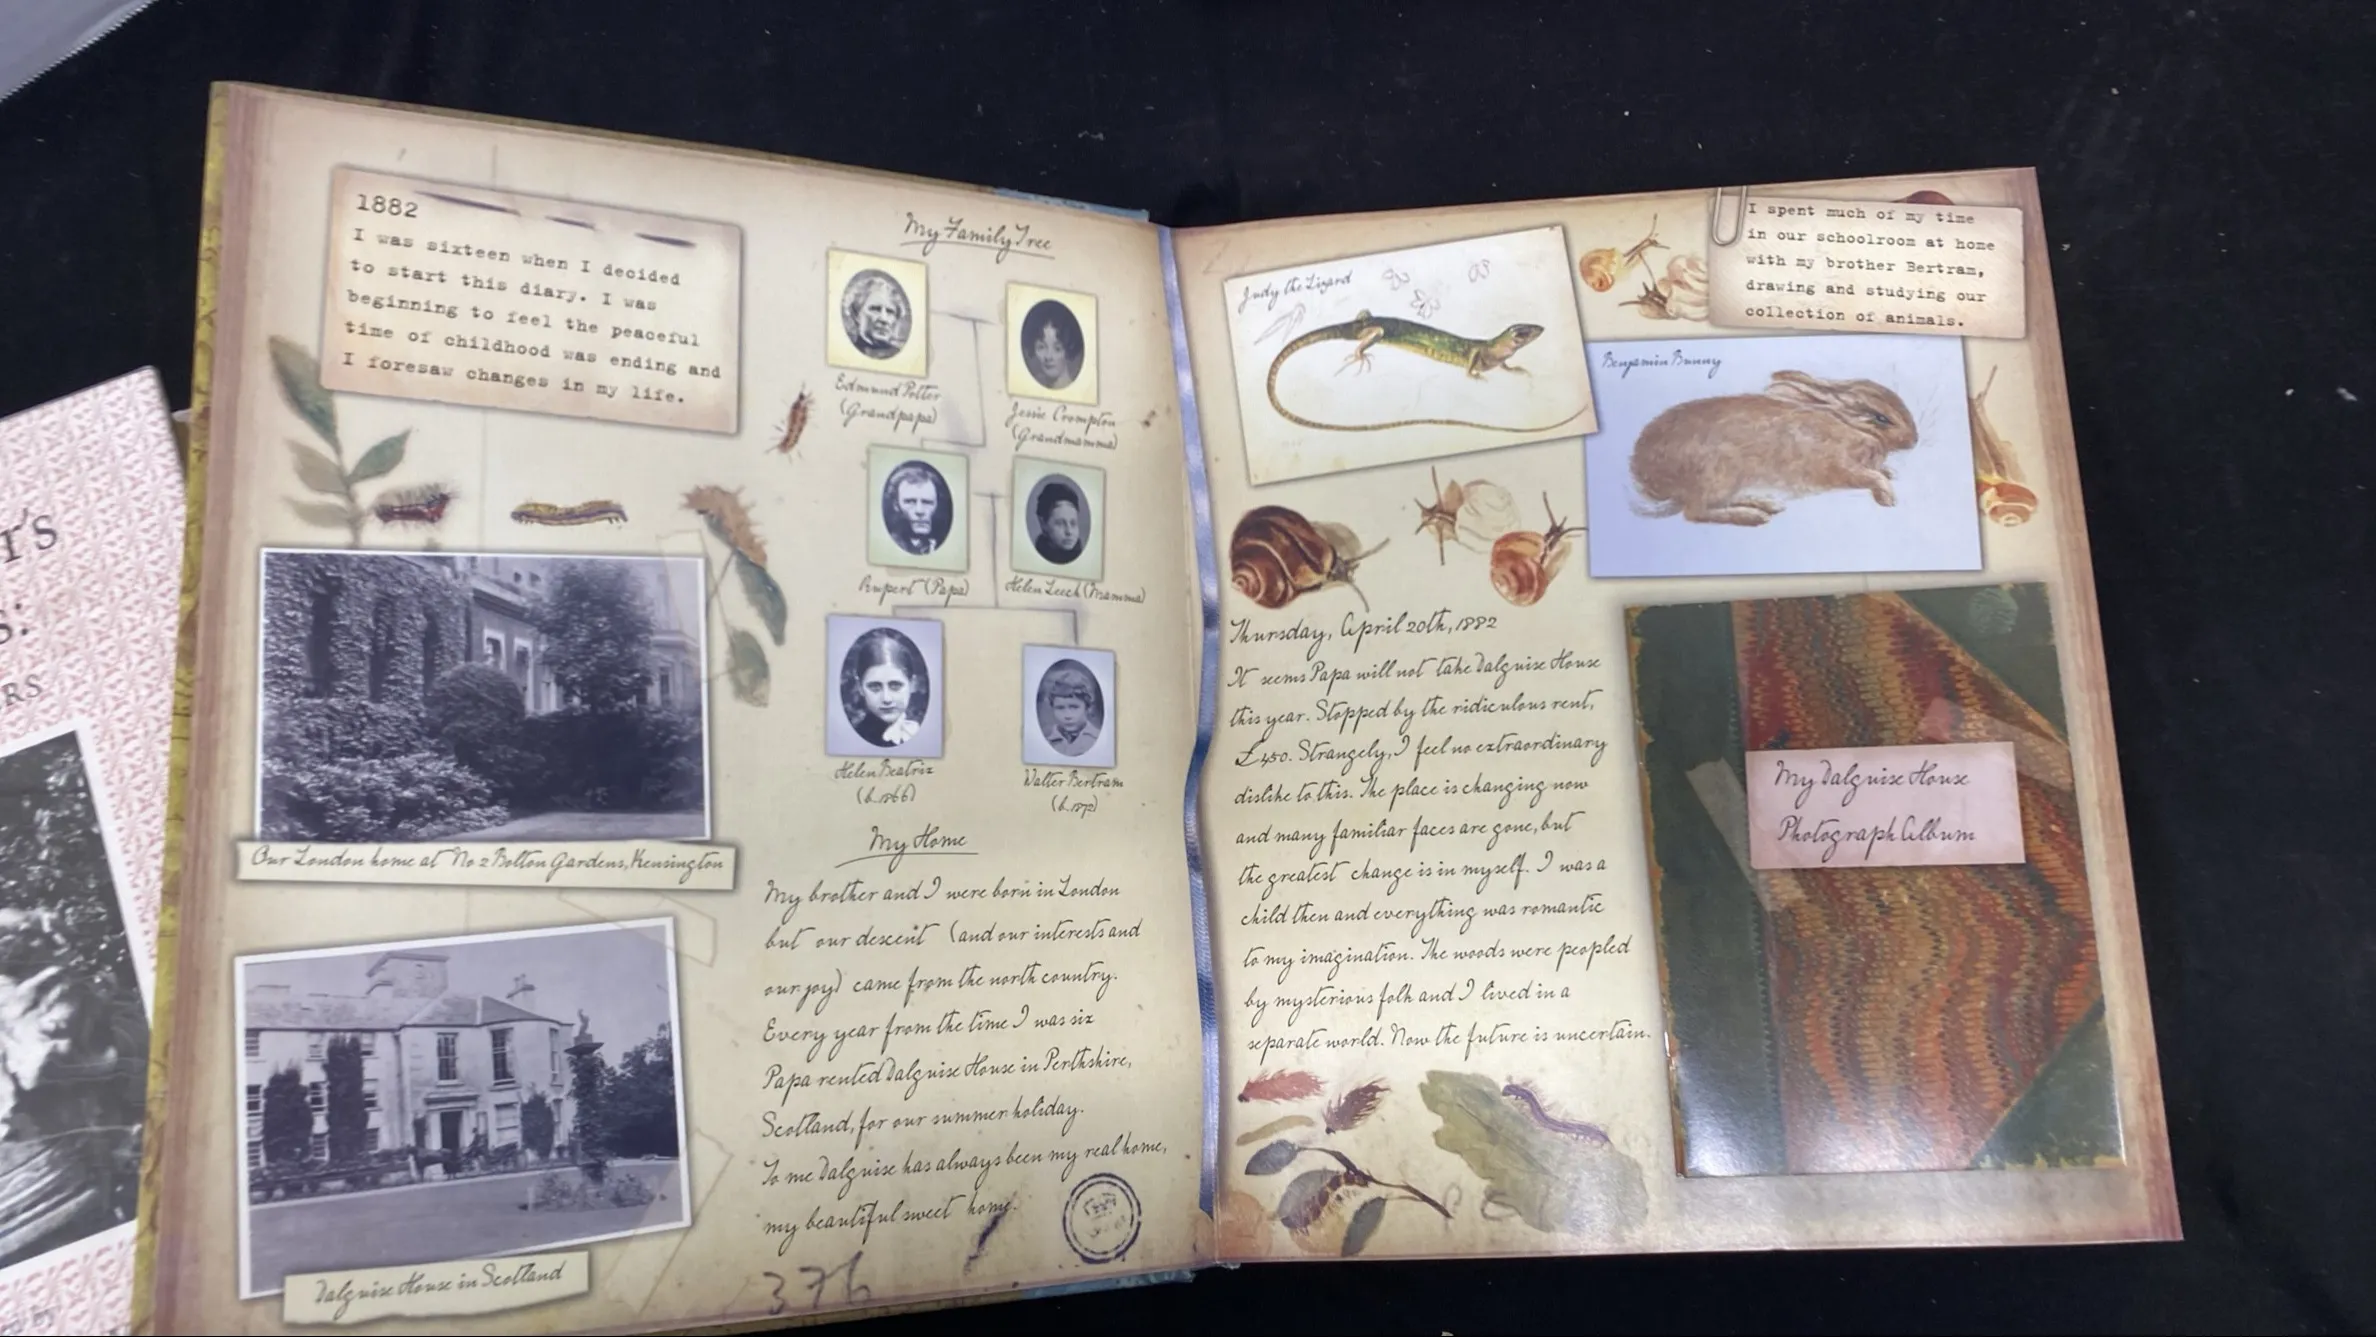 1882
I was sixteen when I decided
to start this diary. I was
beginning to feel the peaceful
time of childhood was ending and
I foresaw changes in my life.
Our London home at No 2 Bolton Gardens, Kensington
Dalguise House in Scotland
My Family Tree
Edmund Potter
(Grandpapa)
Jessie Crompton
(Grandmamma)
Rupert (Papa)
Helen Leech (Mamma)
Helen Beatrix
(b. 1866)
Walter Bertram
(b. 1872)
My Home
My brother and I were born in London
but our descent (and our interests and
our joy) came from the north country.
Every year from the time I was six
Papa rented Dalguise House in Perthshire,
Scotland, for our summer holiday.
To me Dalguise has always been my real home,
my beautiful sweet home.
376
Judy the Lizard
I spent much of my time
in our schoolroom at home
with my brother Bertram,
drawing and studying our
collection of animals.
Benjamin Bunny
Thursday, April 20th, 1882
It seems Papa will not take Dalguise House
this year. Stopped by the ridiculous rent,
£450. Strangely, I feel no extraordinary
dislike to this. The place is changing now
and many familiar faces are gone, but
the greatest change is in myself. I was a
child then and everything was romantic
to my imagination. The woods were peopled
by mysterious folk and I lived in a
separate world. Now the future is uncertain.
My Dalguise House
Photograph Album